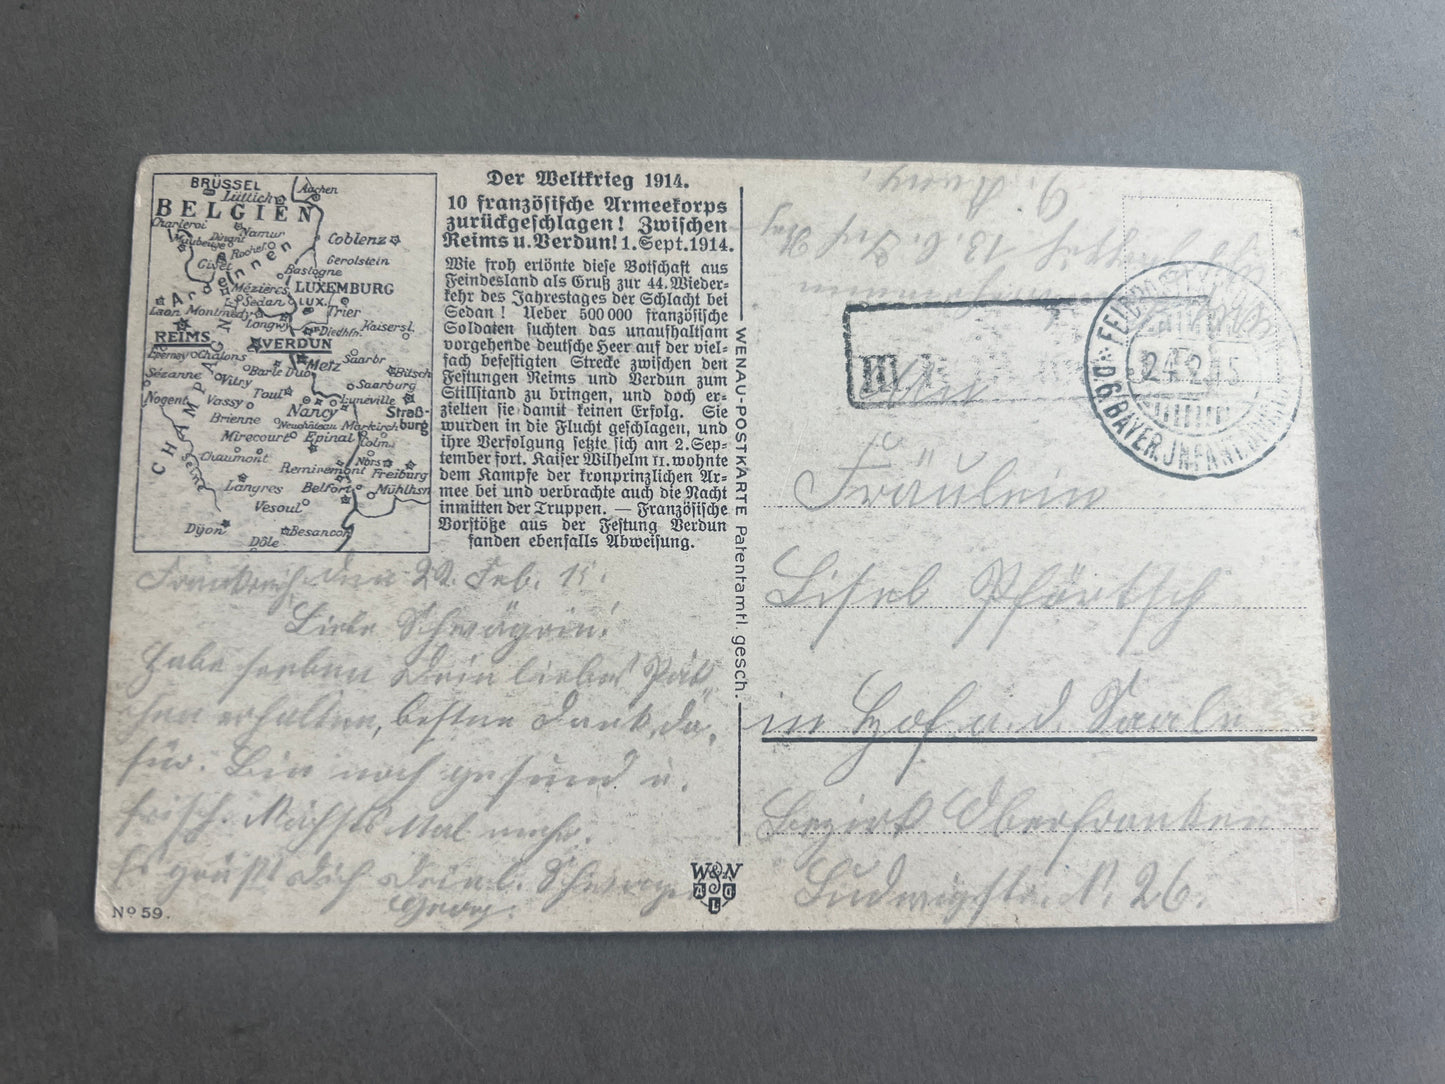 BRÜSSEL
Aachen
Lüttich
BELGIEN
Charleroi
Namur
Maubeuge
Dinant
Coblenz
Rochef
Givet
Gerolstein
Ardennen
Bastogne
Mézieres
LUXEMBURG
Sedan
LUX.
Trier
Laon
Montmédy
Longwy
Diedhfn.
Kaisersl.
REIMS
VERDUN
Epernay
Châlons
Metz
Saarbr
Bar le Duc
Bitsch
Sézanne
Vitry
Saarburg
Toul
Nogent
Vassy
Nancy
Luneville
Straß-
burg
Brienne
Neuchâteau
Markirch
Mirecourt
Epinal
Colm.
CHAMPAGNE
Chaumont
Remiremont
Freiburg
Seine
Langres
Belfort
Mühlhsn
Vesoul
Dijon
Besancon
Dôle
Der Weltkrieg 1914.
10 französische Armeekorps
zurückgeschlagen! Zwischen
Reims u. Verdun! 1. Sept. 1914.
Wie froh ertönte diese Botschaft aus
Feindesland als Gruß zur 44. Wieder-
kehr des Jahrestages der Schlacht bei
Sedan! Ueber 500 000 französische
Soldaten suchten das unaufhaltsam
vorgehende deutsche Heer auf der viel-
fach befestigten Strecke zwischen den
Festungen Reims und Verdun zum
Stillstand zu bringen, und doch er-
zielten sie damit keinen Erfolg. Sie
wurden in die Flucht geschlagen, und
ihre Verfolgung setzte sich am 2. Sep-
tember fort. Kaiser Wilhelm II. wohnte
dem Kampfe der kronprinzlichen Ar-
mee bei und verbrachte auch die Nacht
inmitten der Truppen. — Französische
Vorstöße aus der Festung Verdun
fanden ebenfalls Abweisung.
Frankreich, den 22. Feb. 15.
Liebe Schwägerin!
Habe soeben Dein liebes Päck-
chen erhalten, besten Dank da-
für. Bin noch gesund u.
frisch. Nächstes Mal mehr.
Es grüßt Dich Dein l. Schwager
Georg.
No 59.
WENAU-POSTKARTE Patentamtl. gesch.
W&N
ALD
FELDPOST
24.2.15
D. 6. BAYER. INFANT.
Fräulein
Lisel Pförtsch
in Hof a. d. Saale
Bezirk Oberfranken
Ludwigstr. N. 26.